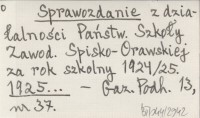 Sprawozdanie z dzia-
łalności Państw. Szkoły
Zawod. Spisko-Orawskiej
za rok szkolny 1924/25.
1925... — Gaz. Podh. 13,
nr 37.